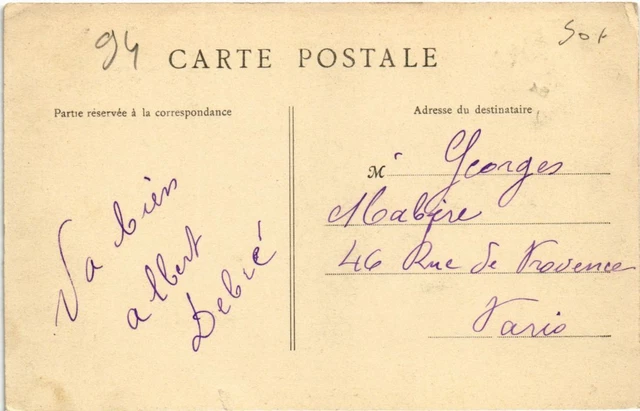 94
CARTE POSTALE
Partie réservée à la correspondance
Adresse du destinataire
Va bien
albert
Debié
M Georges
Mabire
46 Rue de Provence
Paris